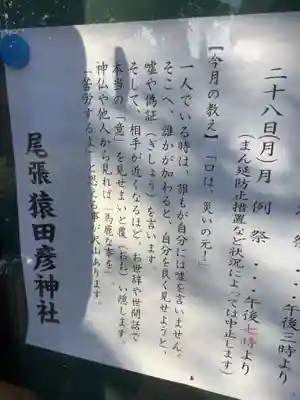 二十八日(月)月例祭・・・午後七時より
(まん延防止措置など状況によっては中止します)
【今月の教え】「口は、災いの元!」
一人でいる時は、誰もが自分には嘘を言いません。
そこへ、誰かが加わると、自分を良く見せようと、
嘘や偽証(ぎしょう)を言います
そして、相手が近くなるほど、お世辞や世間話で
本当の「意」を見せまいと覆(おお)い隠します。
神仏や他人から見れば「馬鹿な事を」
「苦労するよ」と思える事が沢山あります。
尾張猿田彦神社